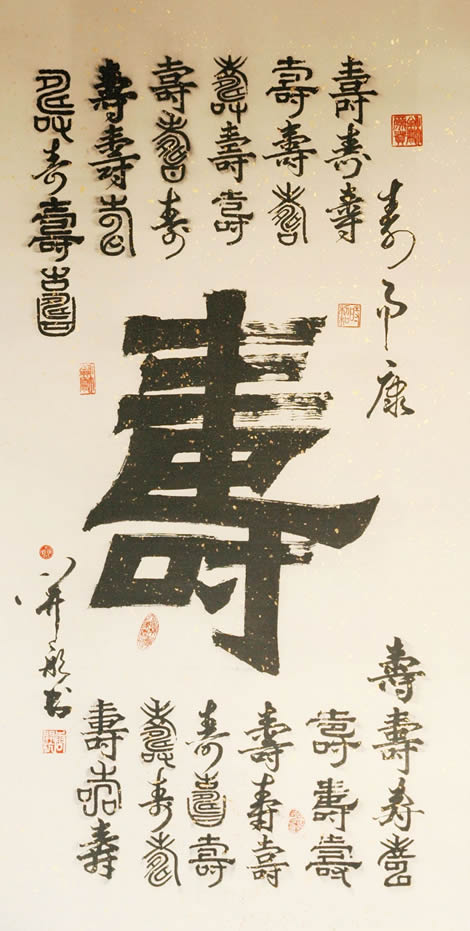 壽而康
壽壽壽
壽壽壽
壽壽壽
壽壽壽
壽壽壽
壽壽壽壽
壽
壽壽壽壽
壽壽壽
壽壽壽
壽壽壽
壽壽壽
壽壽壽